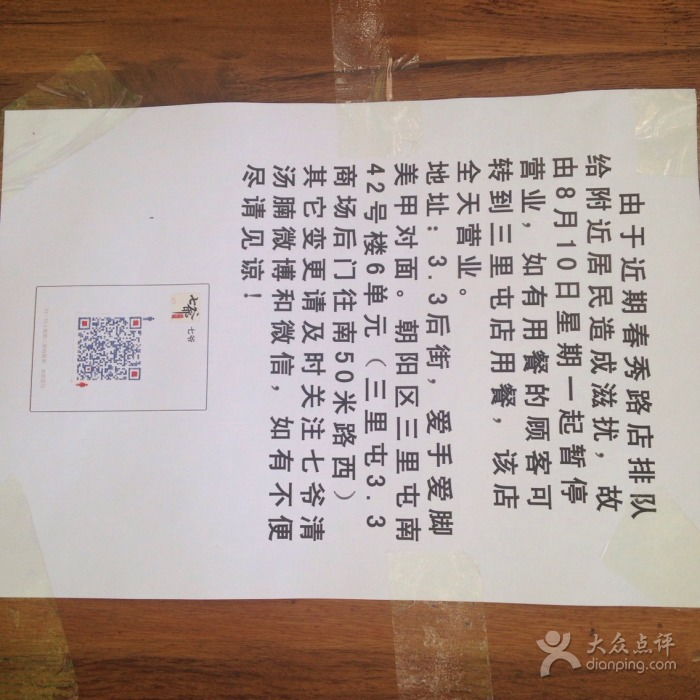 由于近期春秀路店排队
给附近居民造成滋扰，故
由8月10日星期一起暂停
营业，如有用餐的顾客可
转到三里屯店用餐，该店
全天营业。
地址：3.3后街，爱手爱脚
美甲对面。朝阳区三里屯南
42号楼6单元（三里屯3.3
商场后门往南50米路西）
其它变更请及时关注七爷清
汤腩微博和微信，如有不便
尽请见谅！
七爷
七爷
大众点评
dianping.com